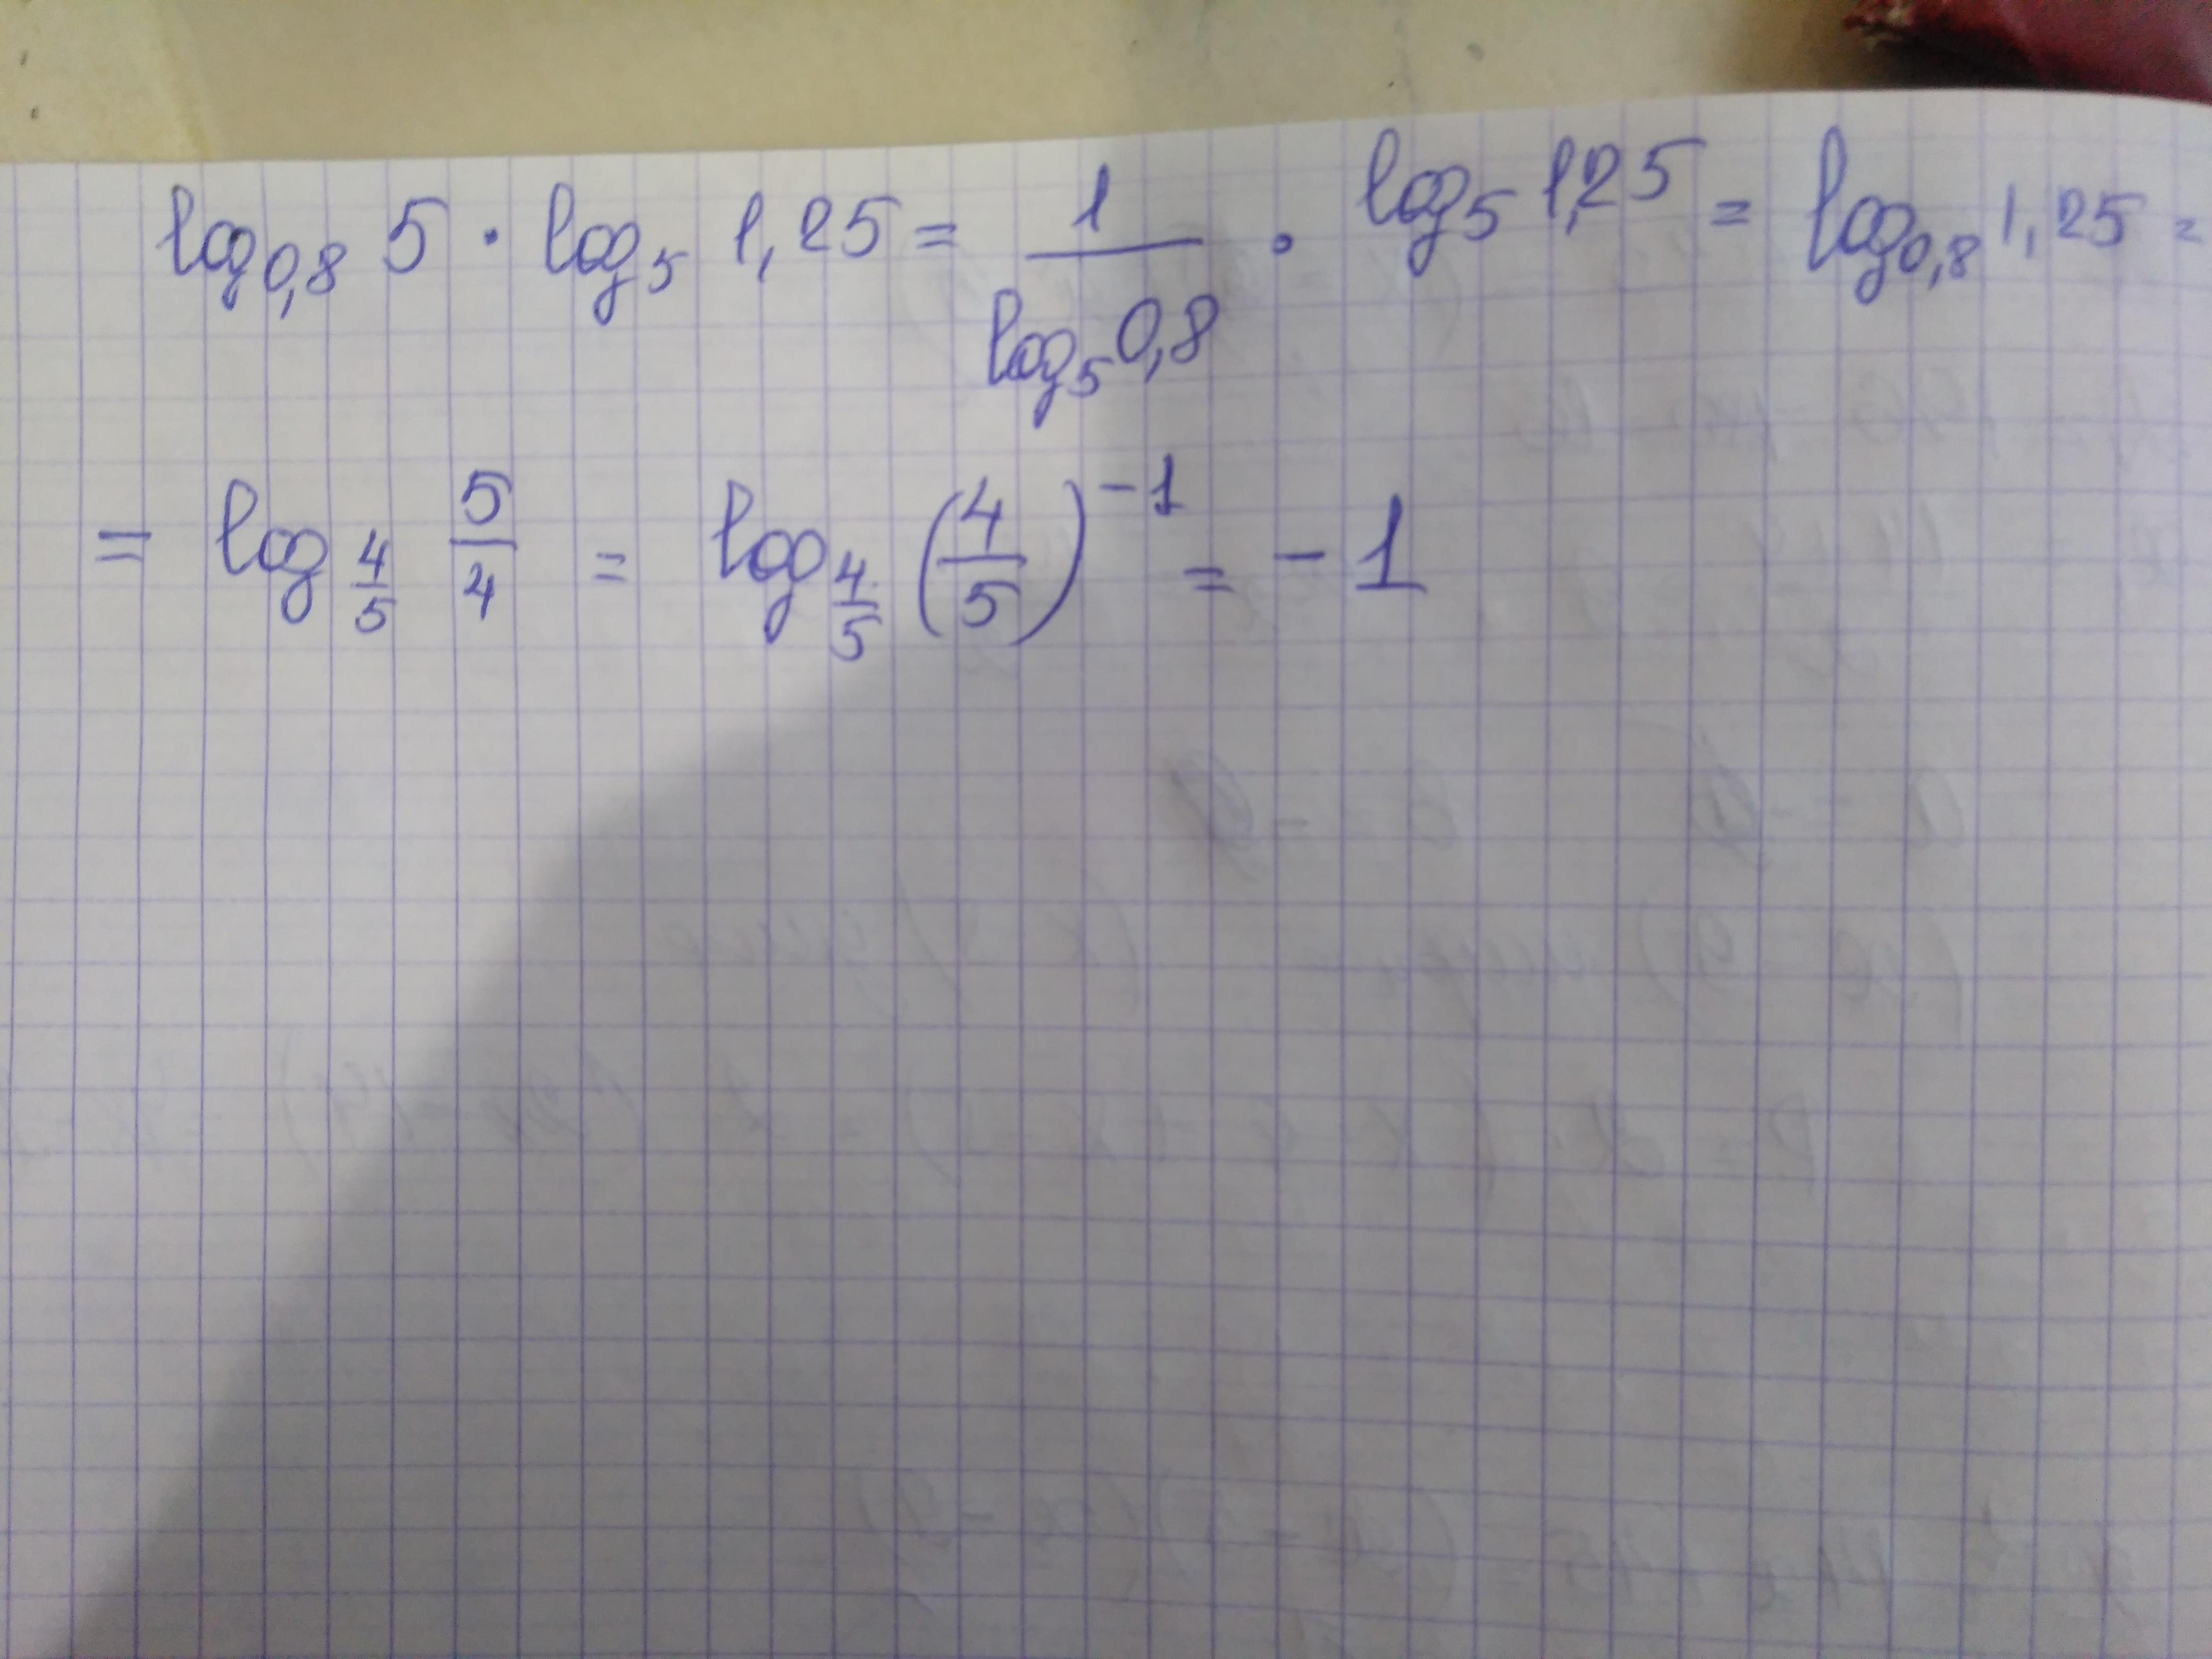 log₀,₈ 5 · log₅ 1,25 = 1/(log₅ 0,8) · log₅ 1,25 = log₀,₈ 1,25 =
= log_(4/5) 5/4 = log_(4/5) (4/5)⁻¹ = - 1